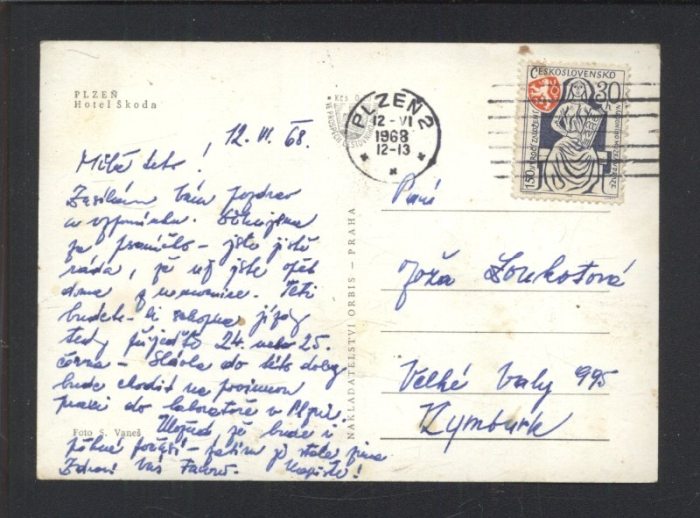 PLZEŇ
Hotel Škoda
12. VI. 68.
Milá teto!
Zasílám Vám pozdrav
a vzpomínku. Děkuji
za psaníčko – jste jistě
ráda, že už jste opět
doma z nemocnice. Teti
budete-li schopna jízdy
tedy přijeďte 24. nebo 25.
června – Slávka do této doby
bude chodit na
praxi do laboratoře v Plzni.
Foto S. Vaneš
bude i
pěkné počasí – zatím je stále zima
Zdraví Váš Napište!
NAKLADATELSTVÍ ORBIS – PRAHA
PLZEŇ 2
12 -VI
1968
12-13
ČESKOSLOVENSKO
30
Paní
Joža Loukotová
Velké Valy 995
Nymburk